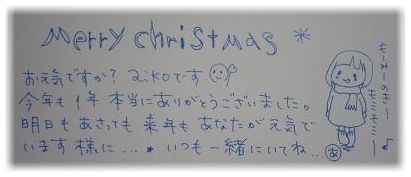 merry christmas *
お元気ですか? aikoです
今年も1年本当にありがとうございました。
明日もあさっても来年もあなたが元気で
います様に...*いつも一緒にいてね...
あ